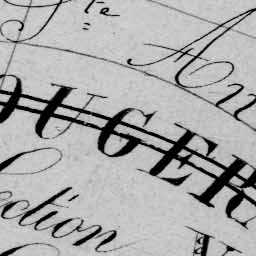 Ste An
OUGER
ection